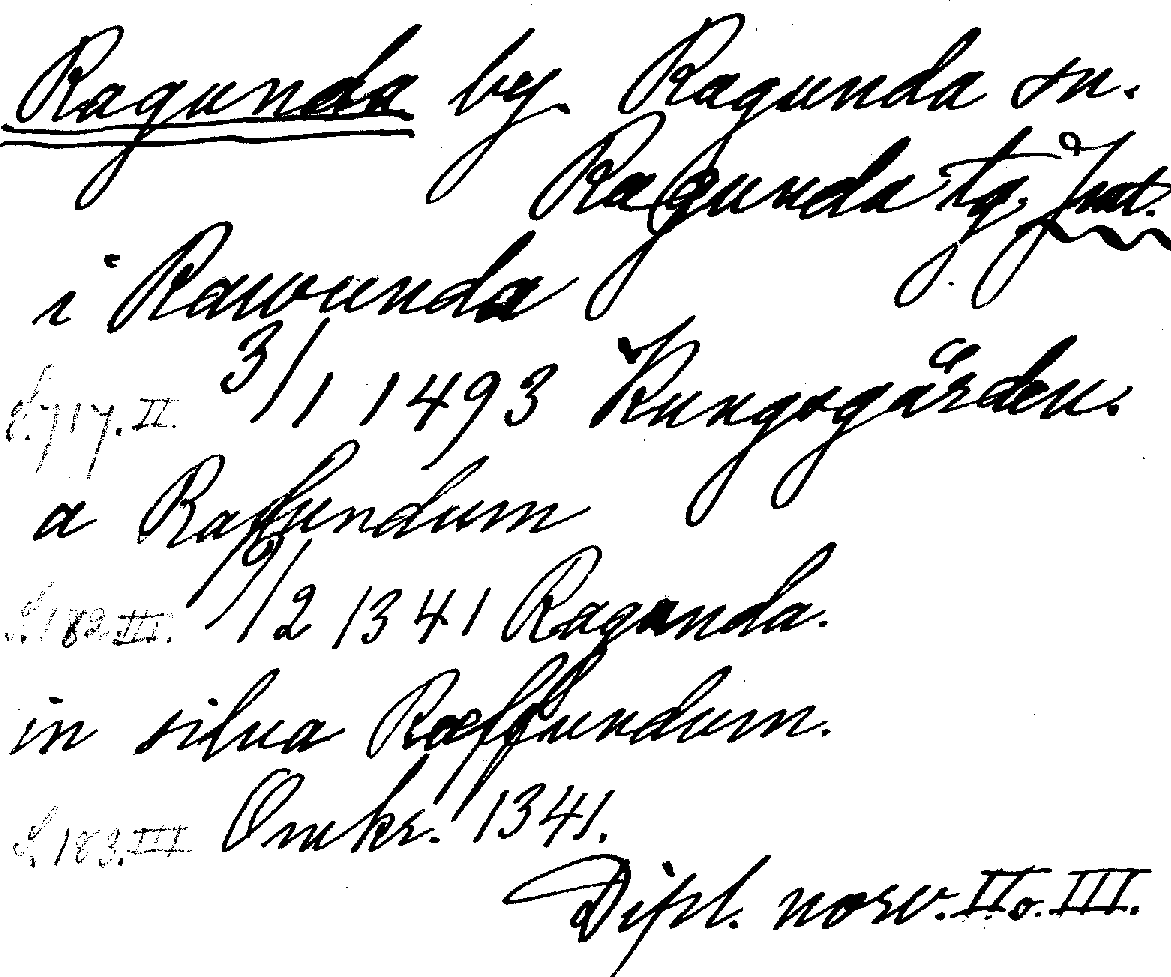 Ragunda by. Ragunda sn.
Ragunda tg. Jmt.
i Rawunda
S. 717. II. 3/1 1493 Kungsgården.
a Raffundum
S. 182 III. 9/2 1341 Ragunda.
in silua Ræffundum.
S. 183. III Omkr. 1341.
Dipl. norv. II o. III.